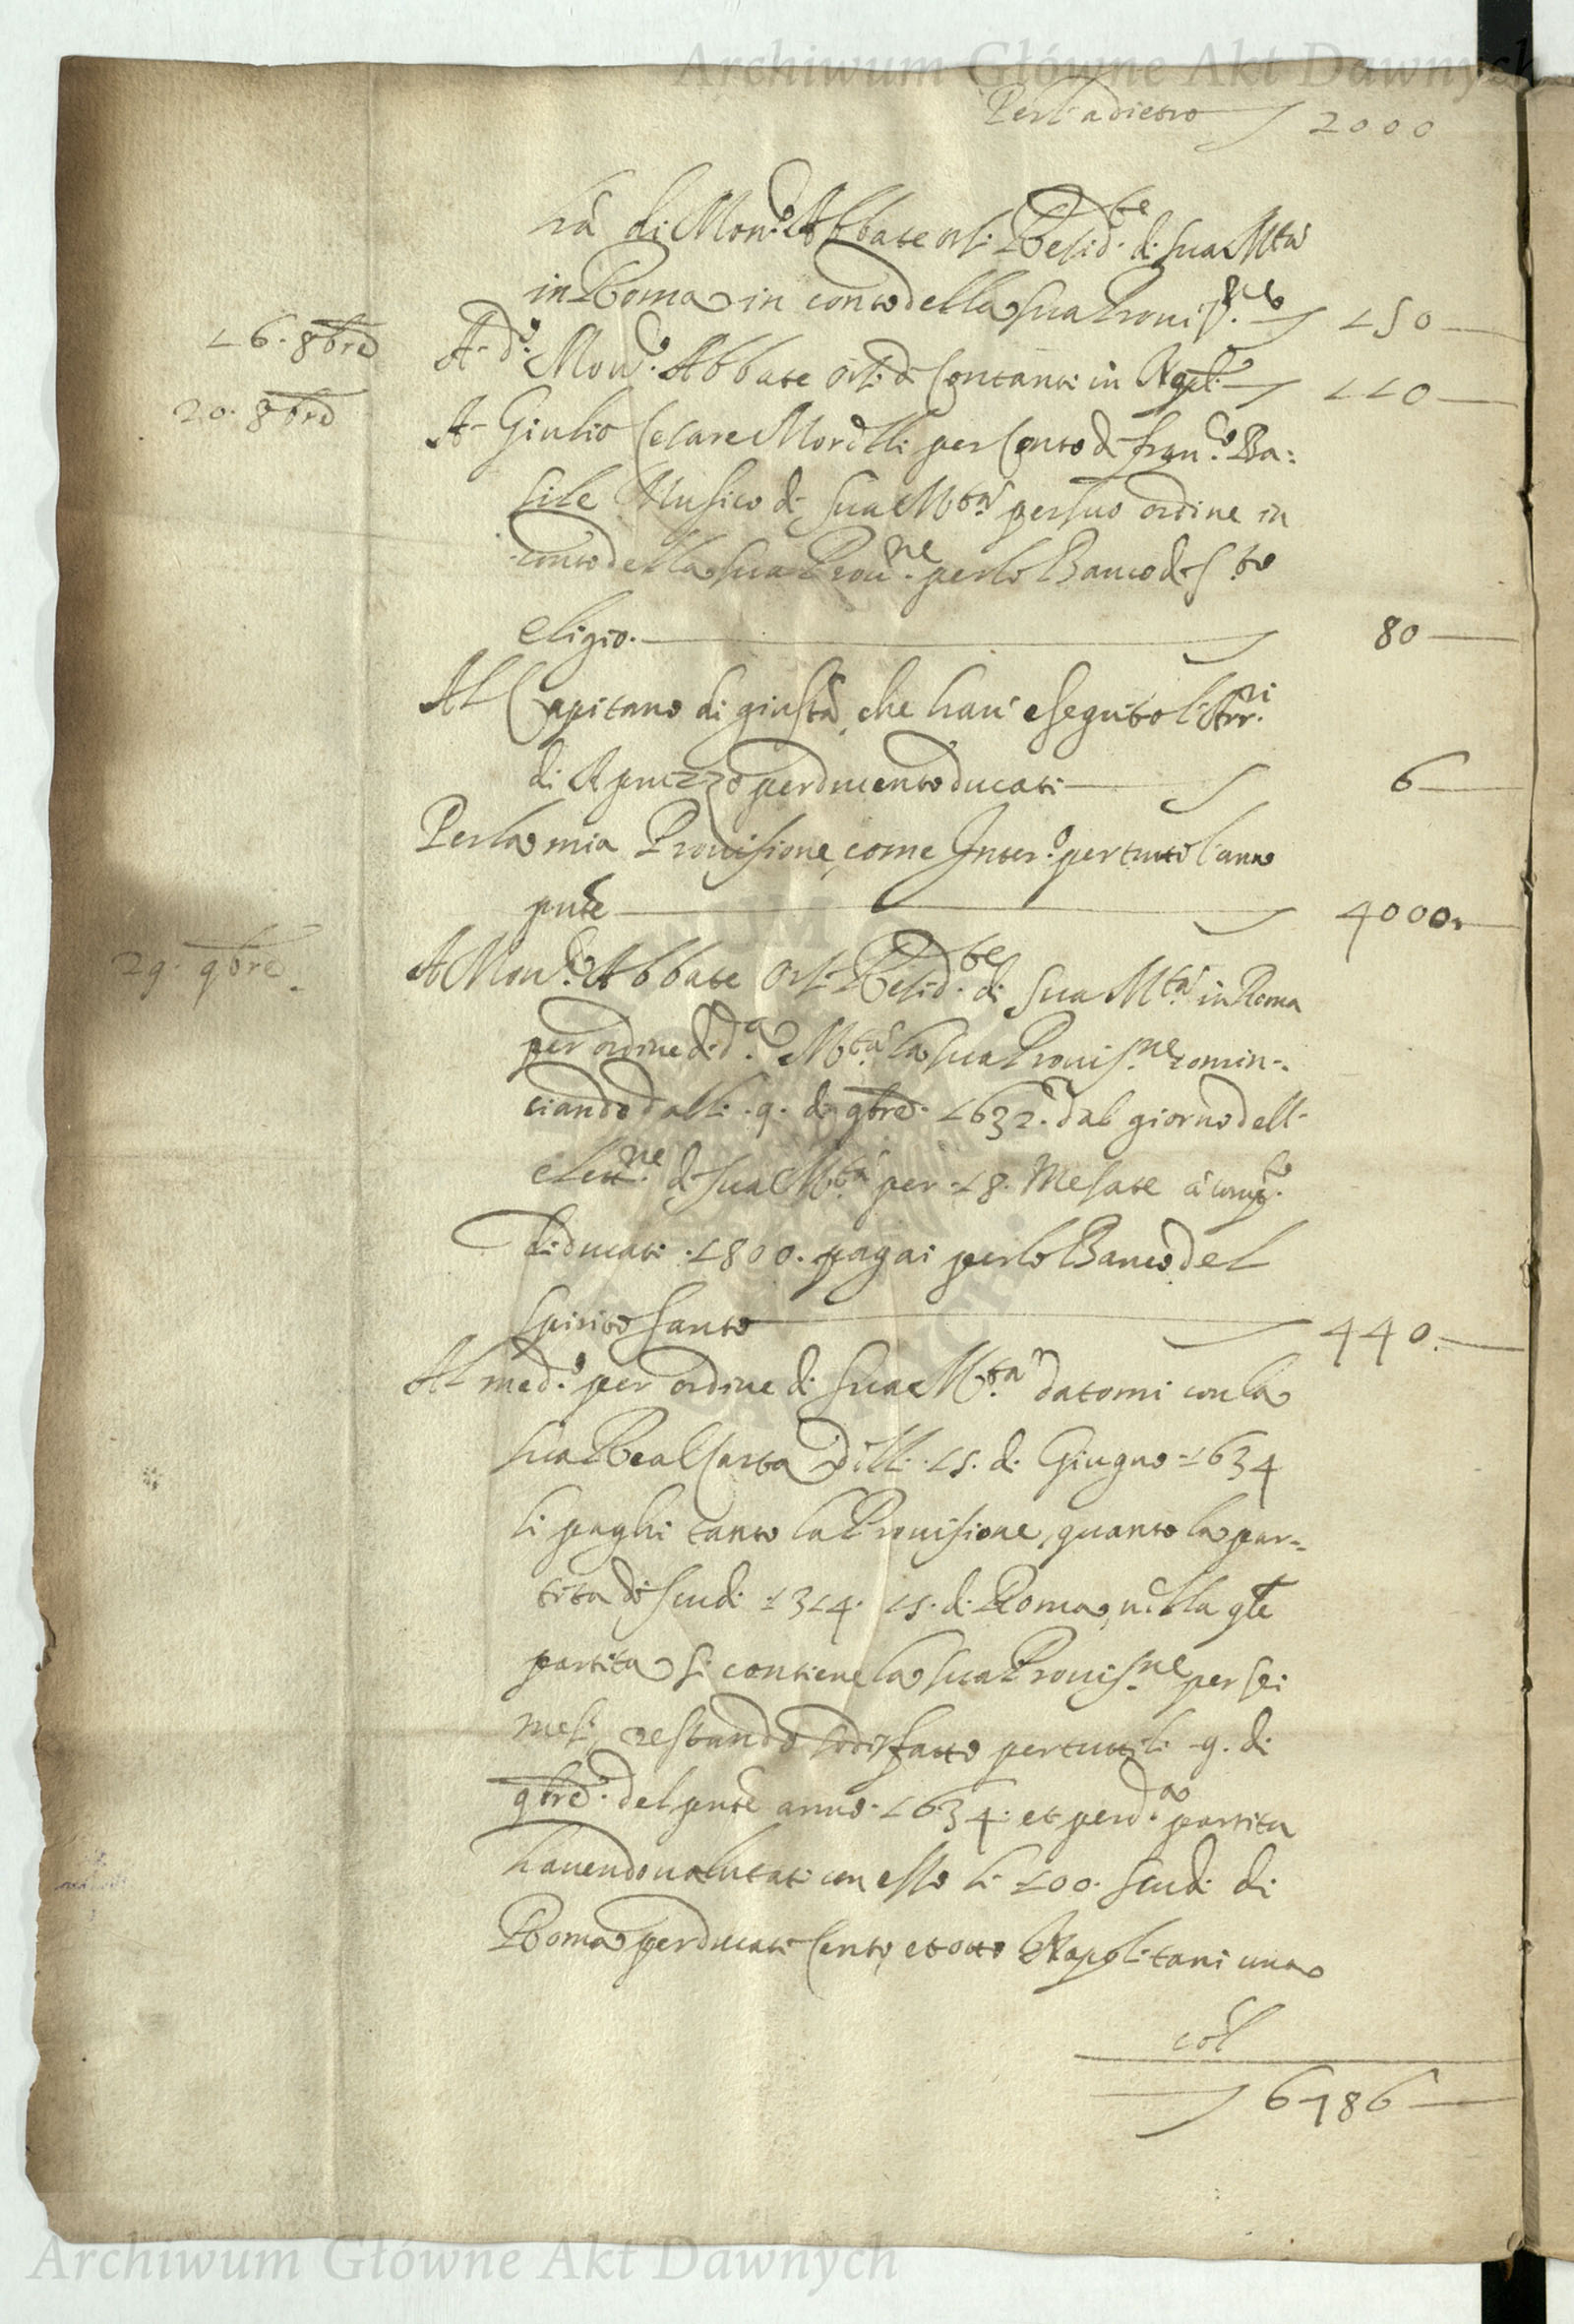 Archiwum Główne Akt Dawnych
Per l'adietro 2000
di Mons.r Abbate Ors: Resid.te di sua M.tà
in Roma in conto della sua Prouis.ne 150
16. 8bre A d.o Mons.r Abbate Ors: di Contanti in Napoli 110
20. 8bre A Giulio Cesare Morelli per Conto di fran.co Ba:
sile Musico di sua M.tà per suo ordine in
conto della sua Prou.ne per lo Banco di S.to
eligio. 80
Al Capitano di giustà, che hani eseguito li Arr.ni
di Apruzzo per ducento ducati 6
Per la mia Prouisione, come Inter.o per tutto l'anno
pnte 4000
29. 9bre. A Mons.r Abbate Ors: Resid.te di sua M.tà in Roma
per ordine di d.a M.tà la sua Prouis.ne comin-
ciando dalli .9. di 9bre. 1632. dal giorno dell-
elett.ne di sua M.tà per .18. Mesate à comp.to
di ducati .1800. pagai per lo Banco del
spirito santo 440.
Al med.o per ordine di sua M.tà datomi con la
sua Real Carta delli .15. di Giugno 1634
li paghi tanto la Prouisione, quanto la par-
tita di scudi 1314. 15. di Roma, nella qle
partita si contiene la sua Prouis.ne per sei
mesi, restando sodisfatto per tutti li .9. di
9bre. del pnte anno. 1634. et per d.a partita
hauendo ualutati con esso li 100. scudi di
Roma per ducati Cento, et otto Napolitani una
col
6786
Archiwum Główne Akt Dawnych